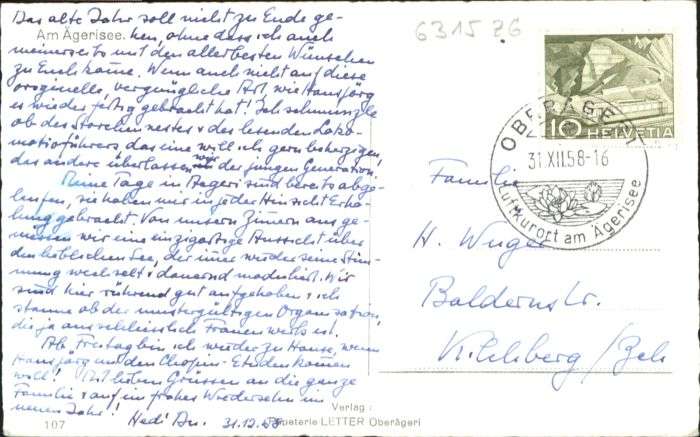 Das alte Jahr soll nicht zu Ende ge-
Am Ägerisee. hen, ohne dass ich auch
meinerseits mit den allerbesten Wünschen
zu Euch komme. Wenn auch nicht auf diese
originelle, vergnügliche Art, wie Hansjörg
es wieder fertig gebracht hat! Ich schmunzle
ob des Storchennestes & des lesenden Loko-
motivführers, das eine will ich gern beherzigen,
das andere überlassen wir der jungen Generation.
Meine Tage in Aegeri sind bereits abge-
laufen, sie haben mir in jeder Hinsicht Erho-
lung gebracht. Von unsern Zimmern aus ge-
niessen wir eine einzigartige Aussicht über
den lieblichen See, der immer wieder seine Stim-
mung wechselt & dauernd moduliert. Wir
sind hier rührend gut aufgehoben & ich
staune ob der mustergültigen Organisation,
die ja ausschliesslich Frauenwerk ist.
Ab Freitag bin ich wieder zu Hause, wenn
Hansjörg mit den Chopin-Etuden kommen
will! Mit lieben Grüssen an die ganze
Familie & auf ein frohes Wiedersehn im
neuen Jahr!
Hedi
31.12.58
107
Verlag:
Papeterie LETTER Oberägeri
6315 ZG
10 HELVETIA
OBERÄGERI
31.XII.58-16
Luftkurort am Ägerisee
Familie
H.
Baldernstr.
Kilchberg / Zch